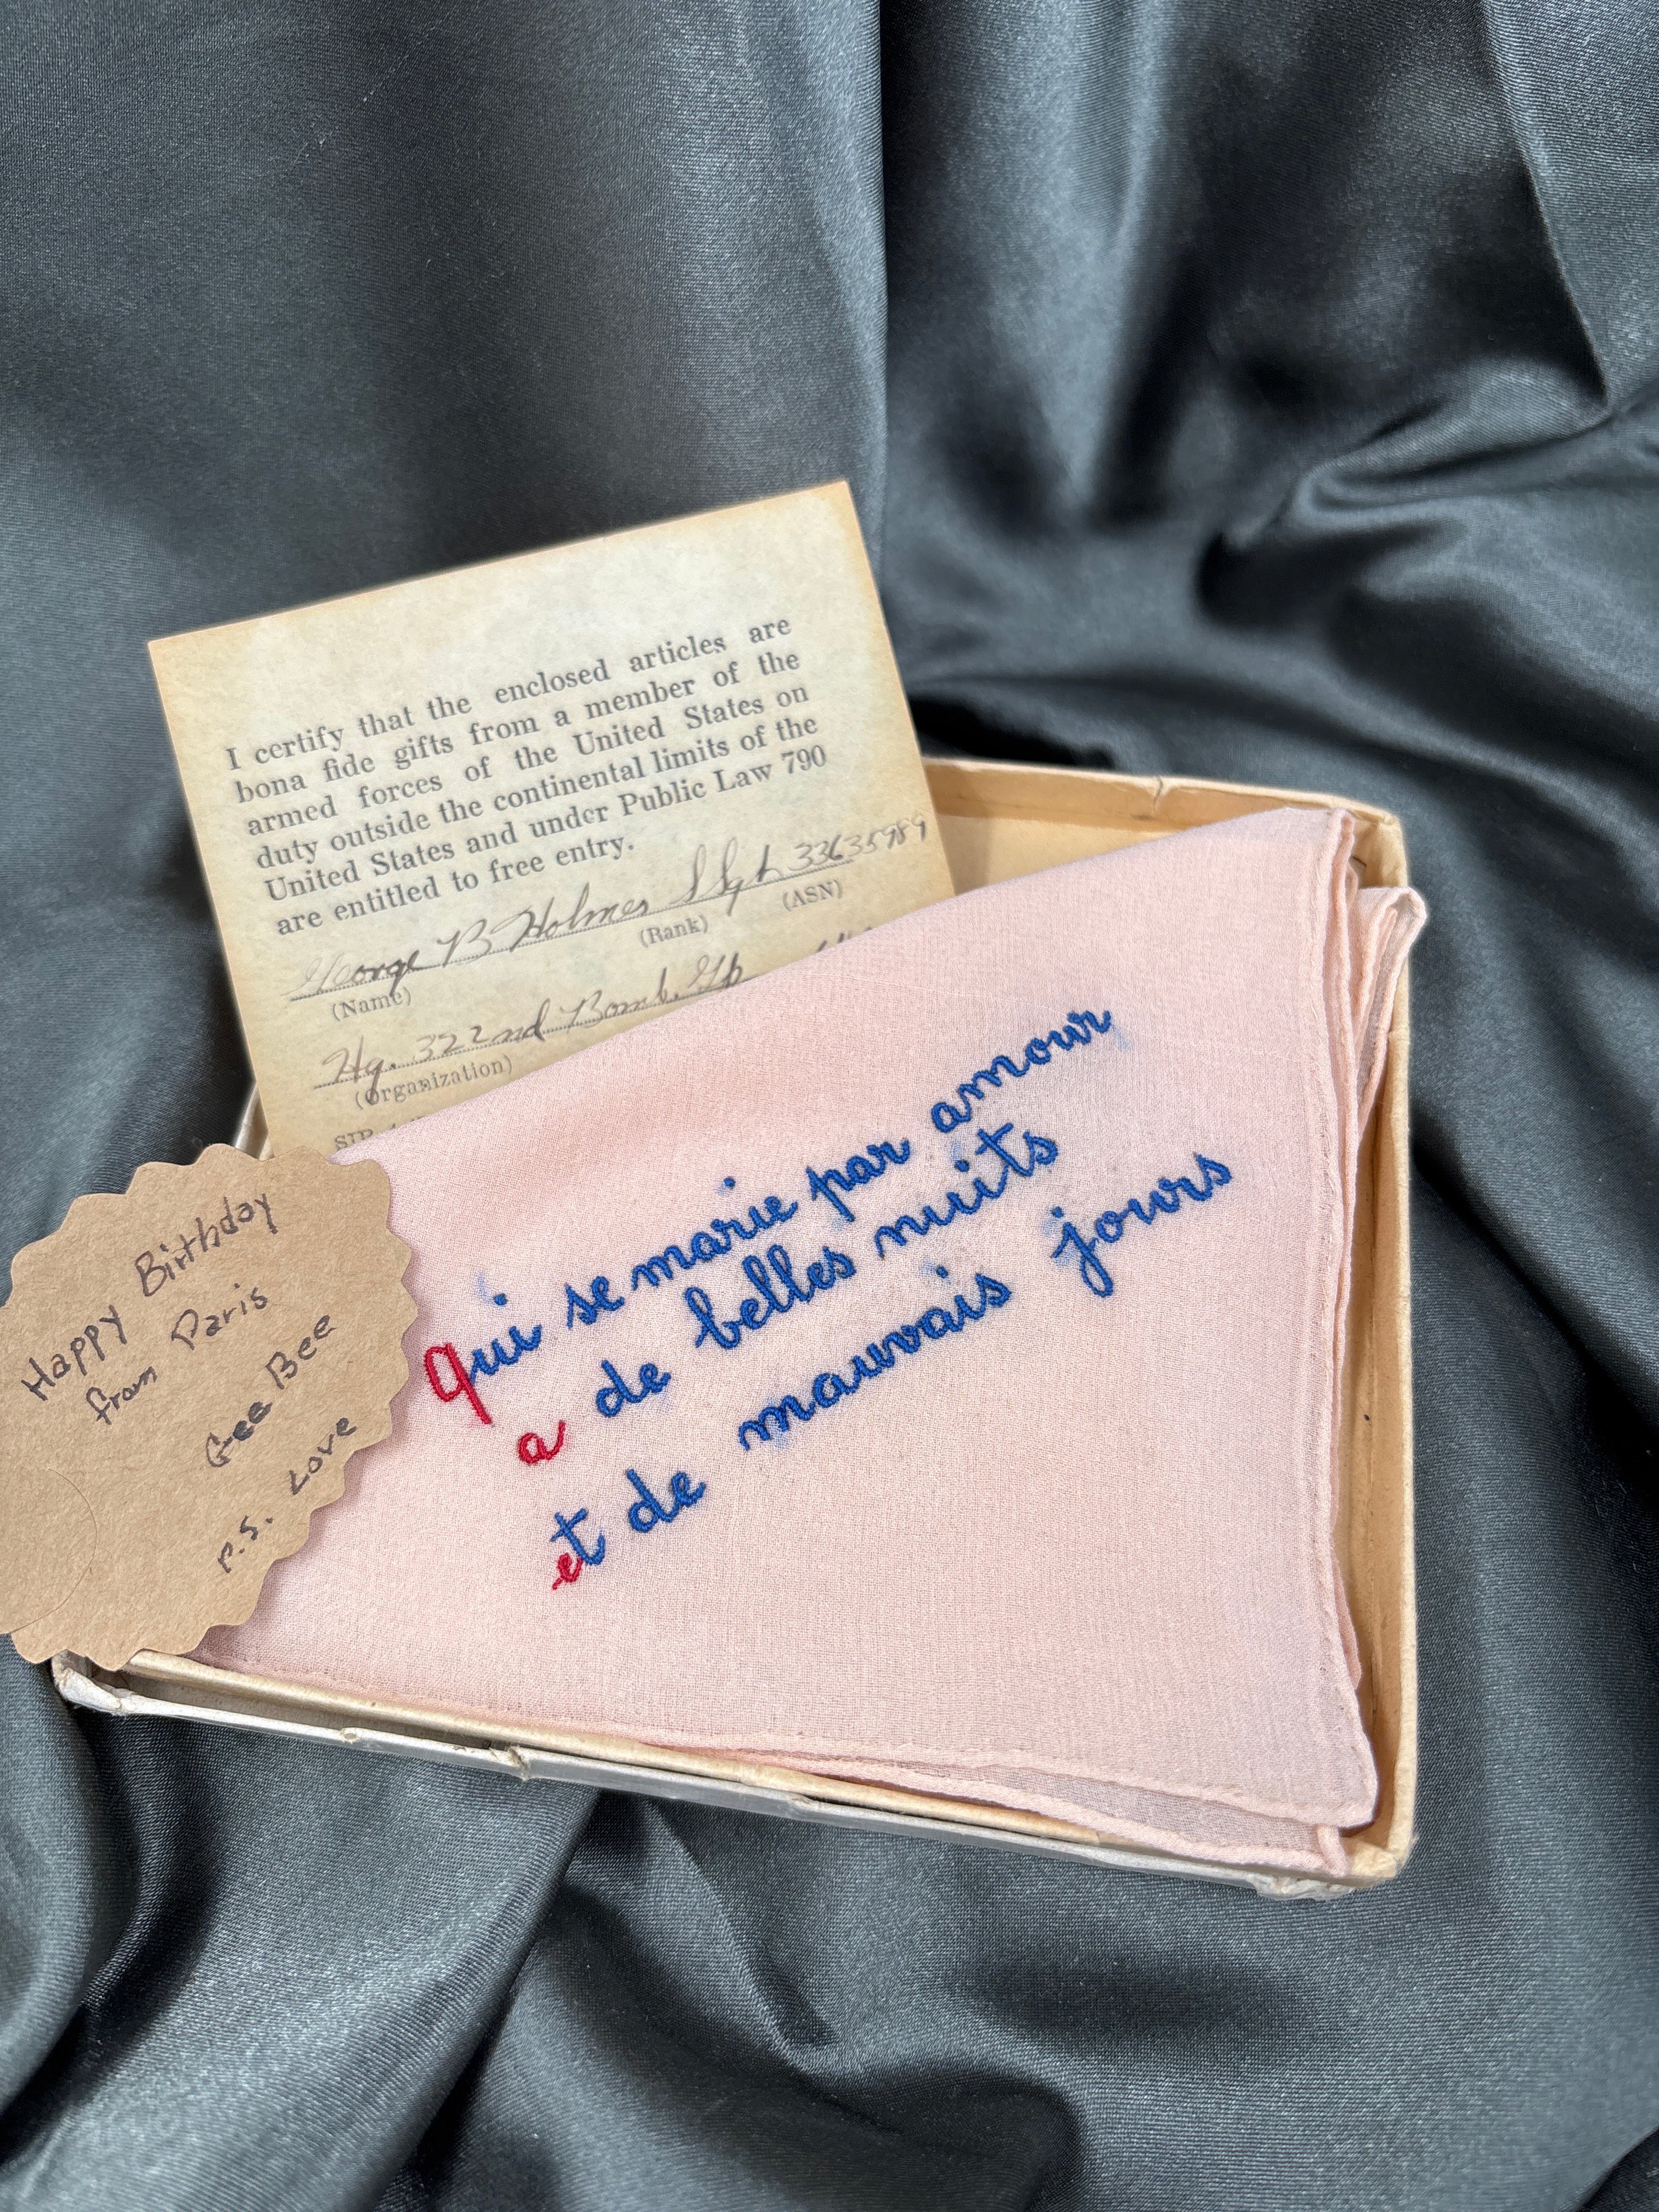 I certify that the enclosed articles are
bona fide gifts from a member of the
armed forces of the United States on
duty outside the continental limits of the
United States and under Public Law 790
are entitled to free entry.
George B Holmes SSgt 33635989
(Name) (Rank) (ASN)
Hq. 322nd Bomb. Gp
(Organization)
Happy Birthday
from Paris
Gee Bee
P.S. Love
Qui se marie par amour,
a de belles nuits
et de mauvais jours